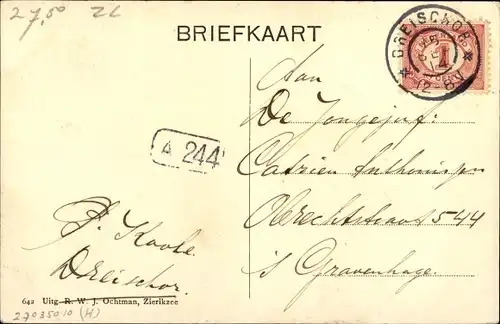 27,50 ZL
BRIEFKAART
DREISCHOR
12-8V
1
Aan
De Jongejuf:
Catrien Anthonisse
Obrechtstraat 544
's Gravenhage.
A 244
Dreischor.
642 Uitg. R. W. J. Ochtman, Zierikzee
27035010 (H)